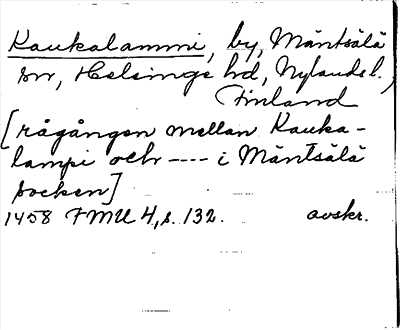 Kaukalammi, by, Mäntsälä
sn, Helsinge hd, Nylands l.,
Finland
[rågången mellan Kauka-
lampi och ---- i Mäntsälä
socken]
1458 FMU 4, s. 132. avskr.